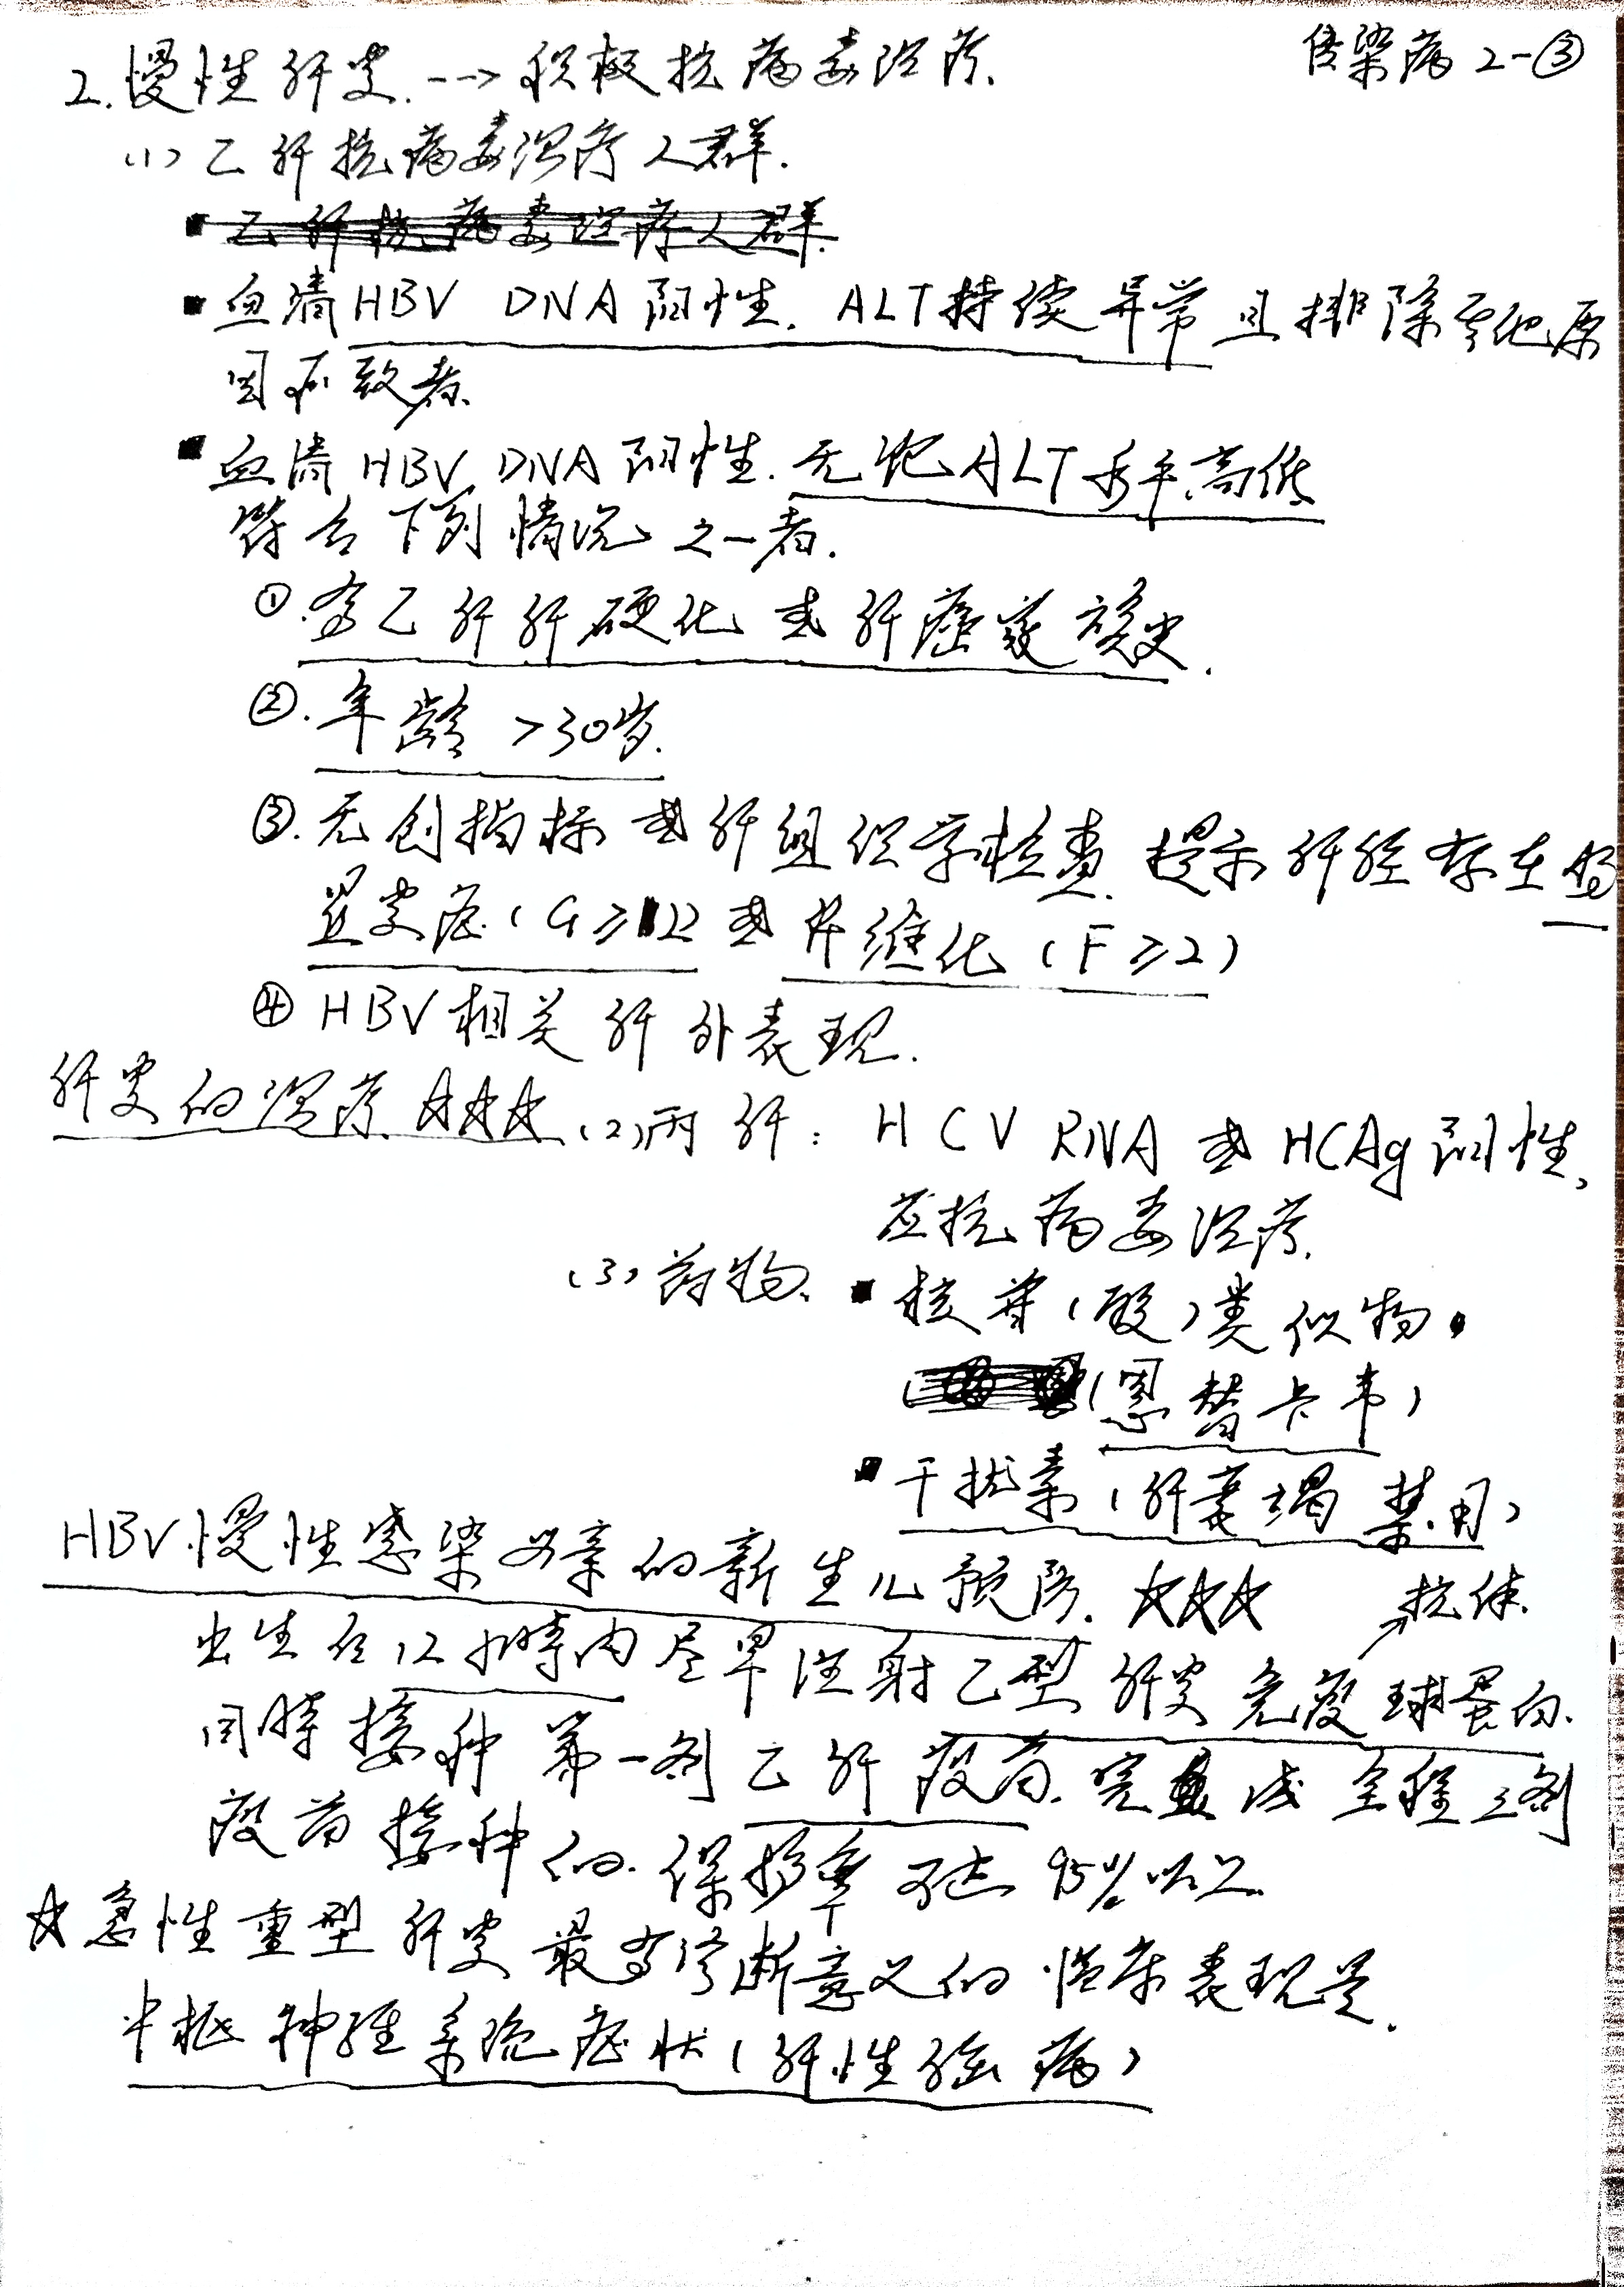 传染病 2-③
2. 慢性肝炎. --> 积极抗病毒治疗.
(1) 乙肝抗病毒治疗人群.
乙肝抗病毒治疗人群.
▪ 血清HBV DNA阳性. ALT持续异常且排除其他原
因所致者.
▪ 血清HBV DNA阳性. 无论ALT水平高低
符合下列情况之一者.
①. 有乙肝肝硬化或肝癌家族史.
②. 年龄 >30岁.
③. 无创指标或肝组织学检查. 提示肝脏存在明
显炎症(G≥2)或纤维化(F≥2)
④ HBV相关肝外表现.
肝炎的治疗. ☆☆☆ (2)丙肝: HCV RNA或HCAg阳性,
应抗病毒治疗.
(3) 药物. ▪ 核苷(酸)类似物.
(恩替卡韦)
▪ 干扰素(肝衰竭禁用)
HBV慢性感染母亲的新生儿预防. ☆☆☆ ↗抗体.
出生后12小时内尽早注射乙型肝炎免疫球蛋白.
同时接种第一剂乙肝疫苗. 完成全程三剂
疫苗接种的. 保护率可达95%以上.
☆急性重型肝炎最有诊断意义的临床表现是.
中枢神经系统症状(肝性脑病)